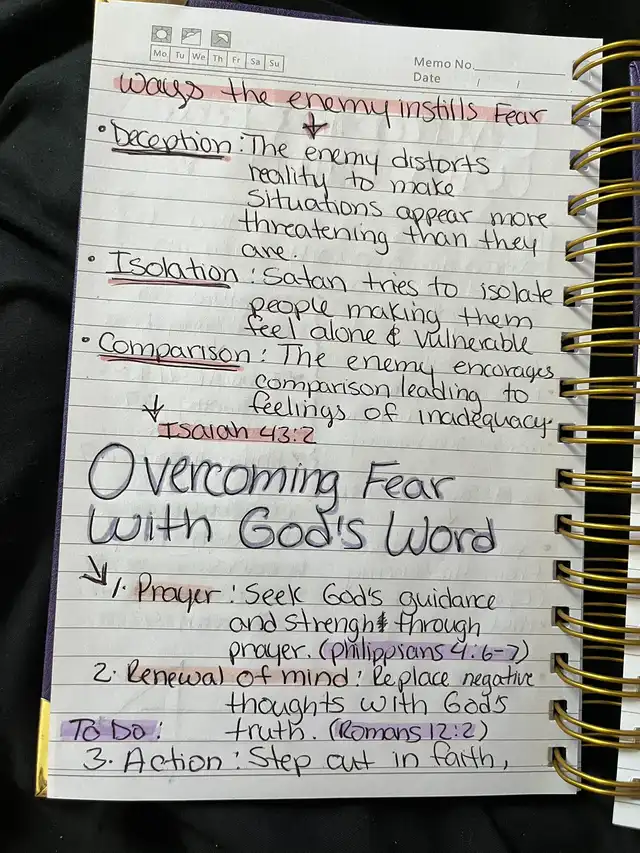 Mo Tu We Th Fr Sa Su
Memo No.
Date / /
ways the enemy instills Fear
• Deception: The enemy distorts
reality to make
situations appear more
threatening than they
are.
• Isolation: Satan tries to isolate
people making them
feel alone & vulnerable
• Comparison: The enemy encorages
comparison leading to
feelings of inadequacy.
Isaiah 43:2
Overcoming Fear
with God's Word
1. Prayer: Seek God's guidance
and strenght through
prayer. (philippians 4:6-7)
2. Renewal of mind: Replace negative
thoughts with God's
To Do: truth. (Romans 12:2)
3. Action: Step out in faith,